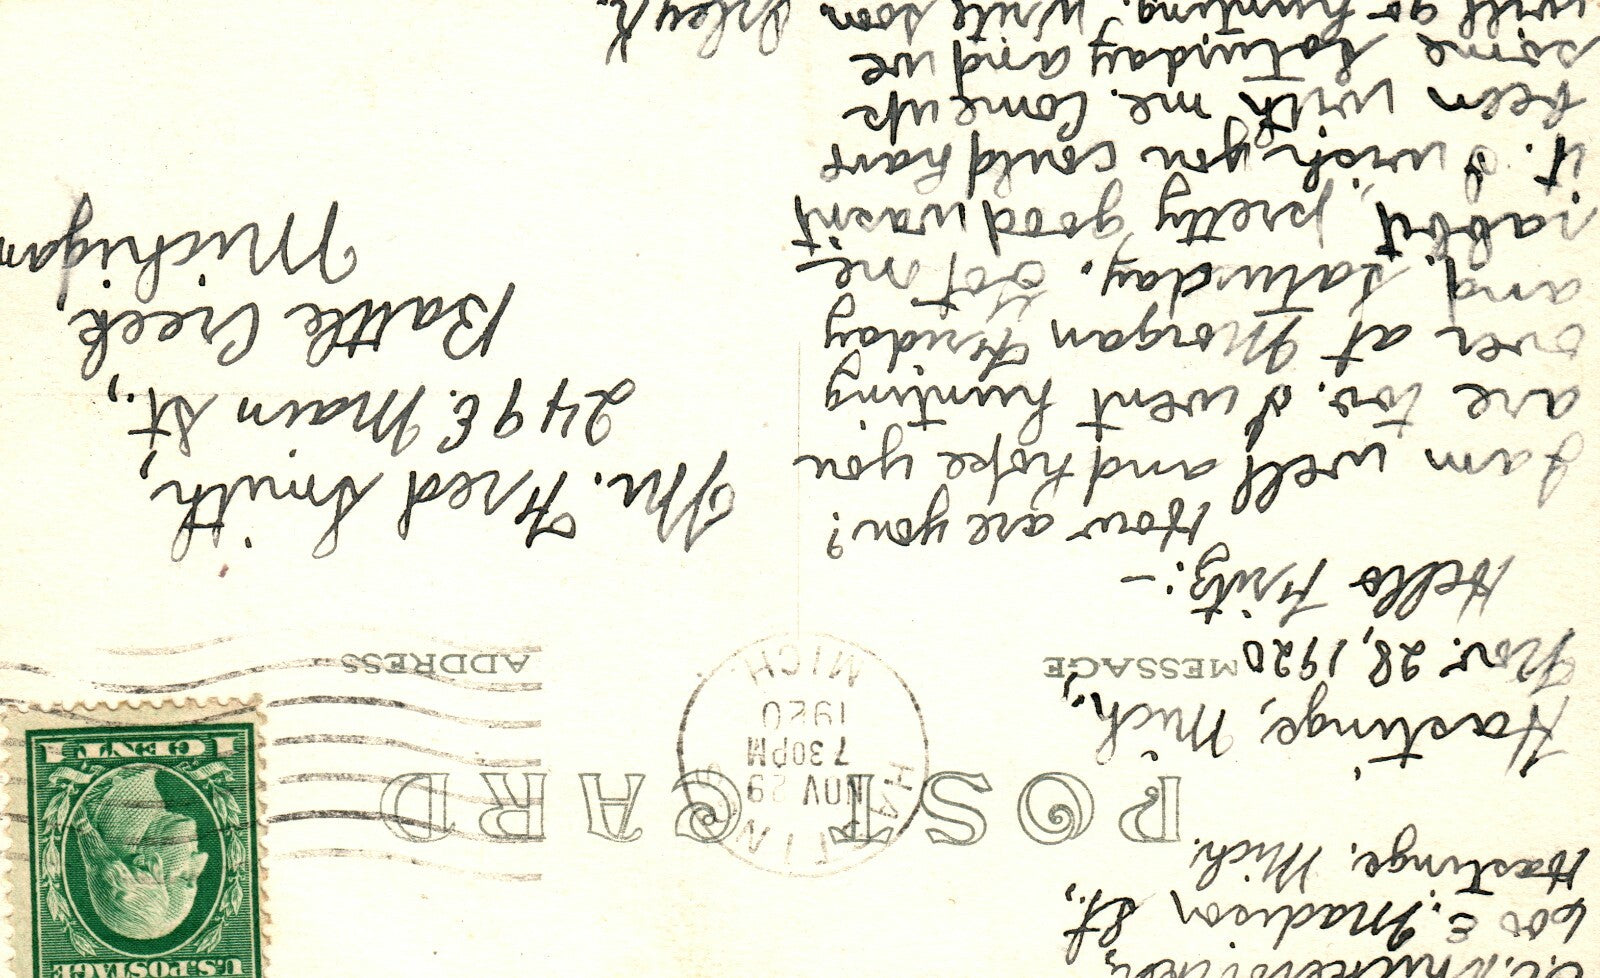 600 E. Madison St.,
Hastings, Mich.
POST CARD
Hastings, Mich.,
Nov. 28, 1920
MESSAGE
Hello Fritz:-
How are you?
I am well and hope you
are too. I went hunting
over at Morgan Friday
and Saturday. Got one
rabbit, pretty good wasn't
it. I wish you could have
been with me. Come up
some Saturday and we
will go hunting. Write soon
HASTINGS
NOV 29
7 30 PM
1920
MICH.
U.S. POSTAGE
1 CENT 1
ADDRESS
Mr. Fred Smith,
249 E. Main St.,
Battle Creek,
Michigan